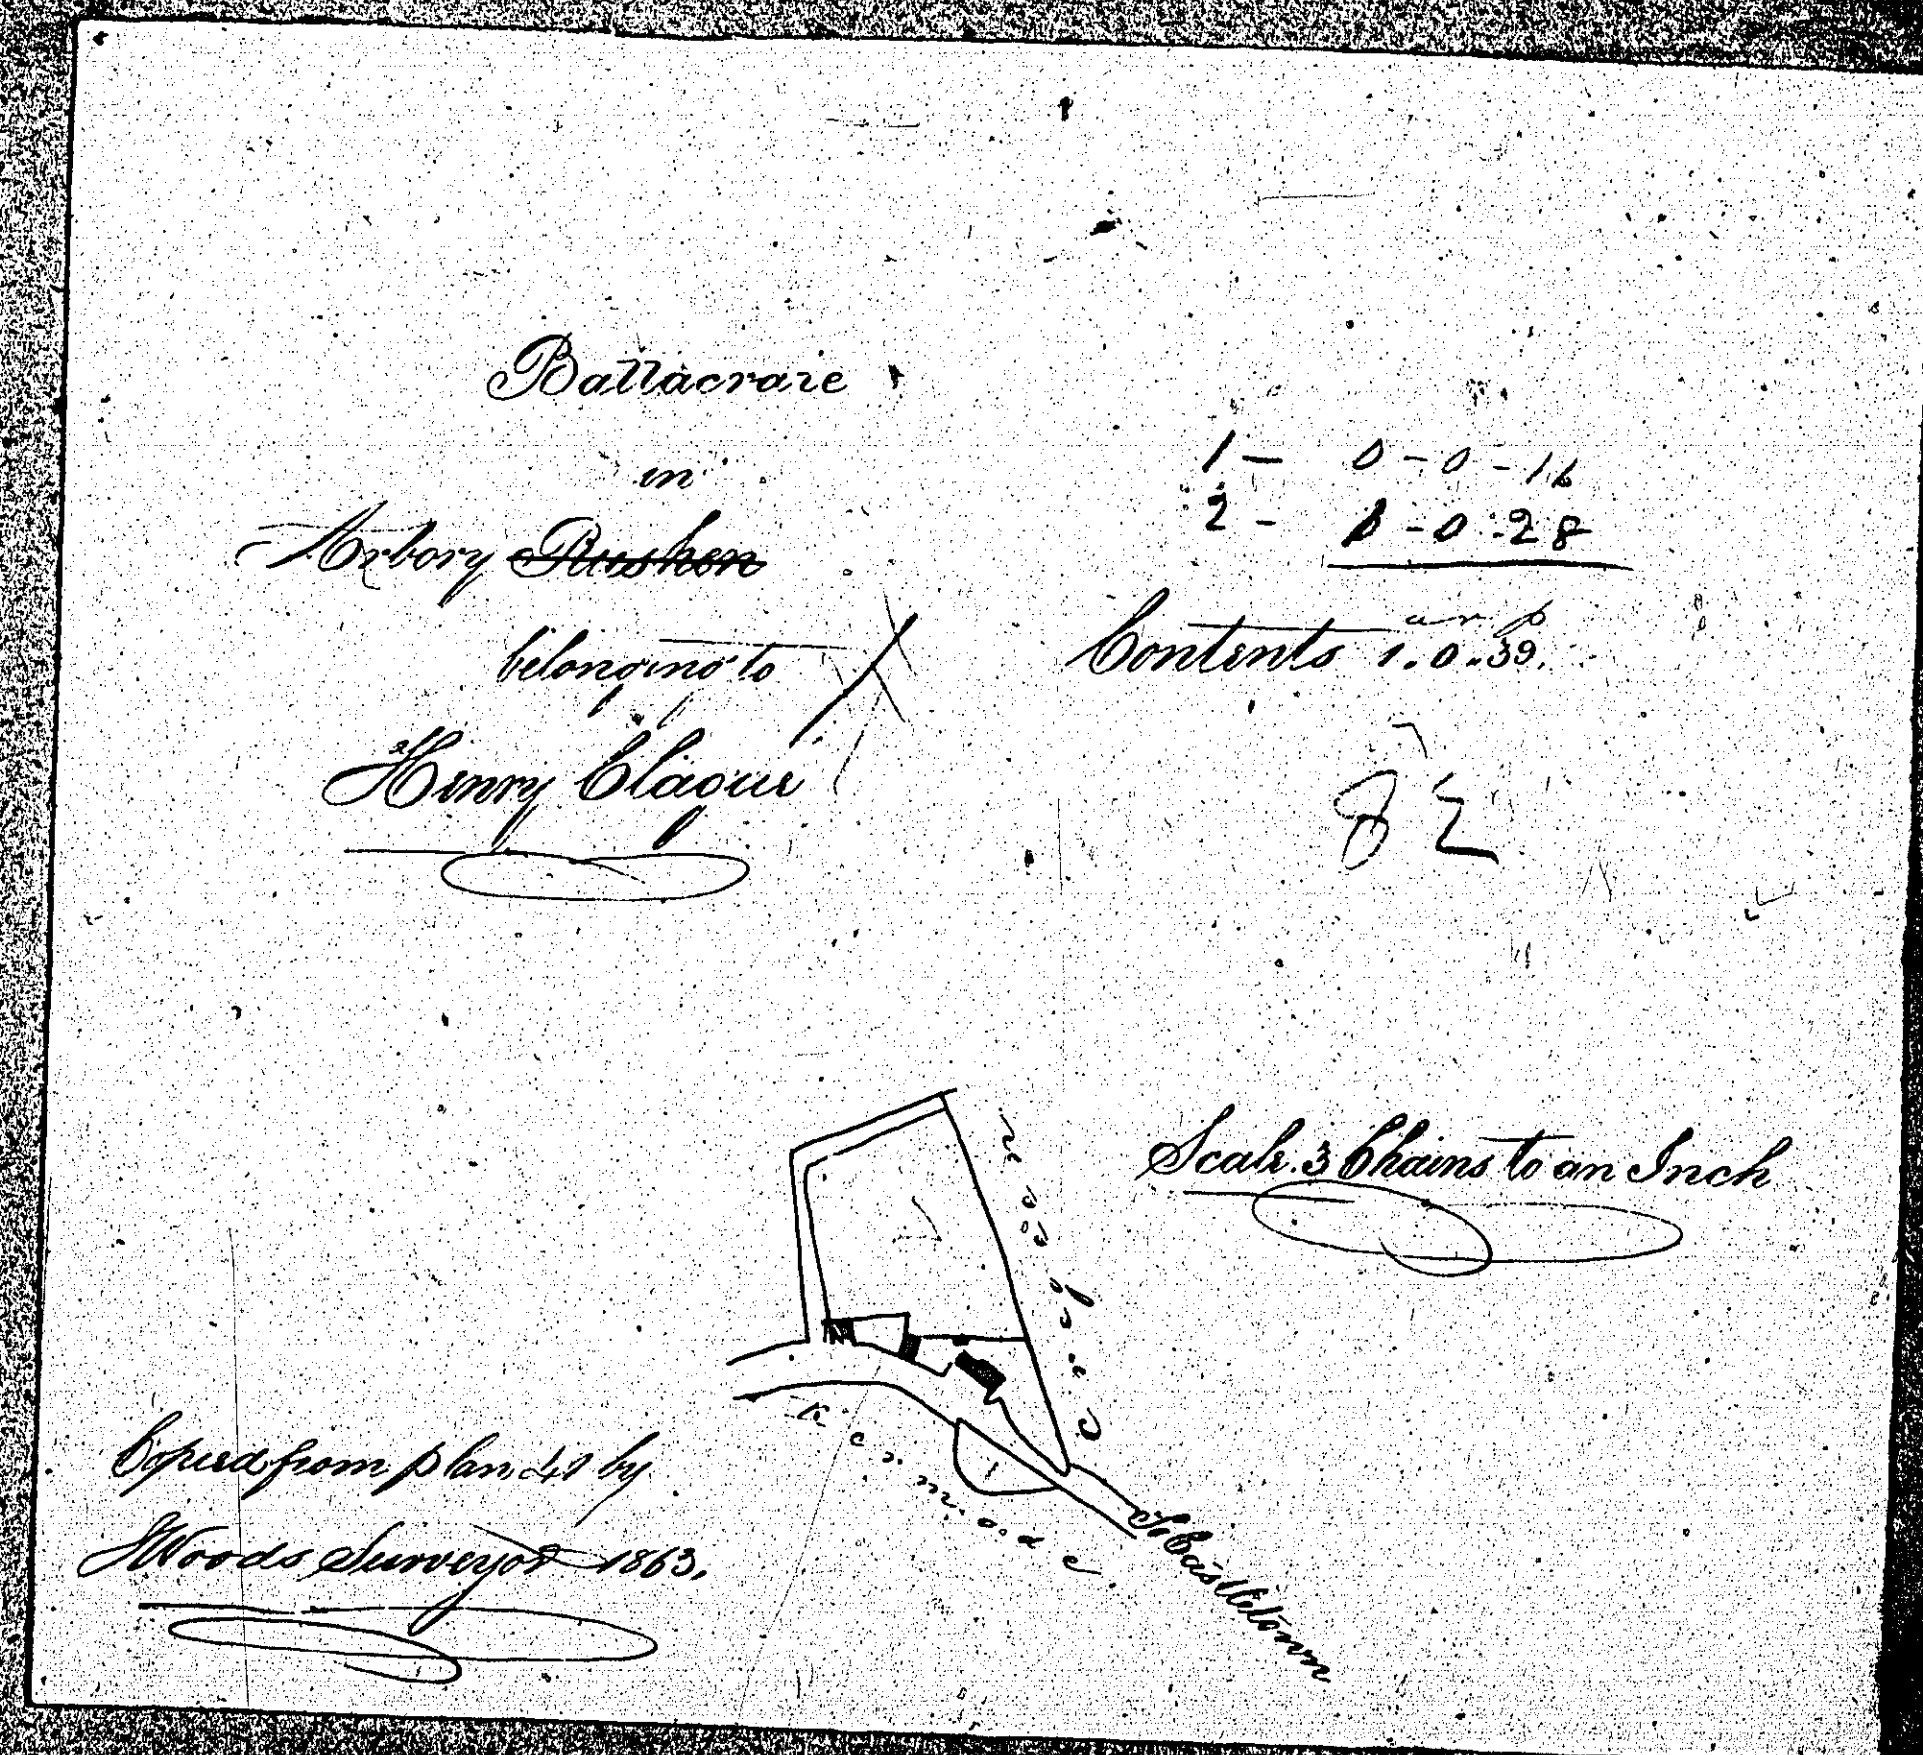 Ballacraie
in
Arbory Rushen
belonging to
Henry Clague
1 - 0 - 0 - 16
2 - 1 - 0 - 28
a r p
Contents 1.0.39.
82
Scale 3 Chains to an Inch
Kermode
1
To Castletown
Copied from plan 41 by
J Woods Surveyor 1863.